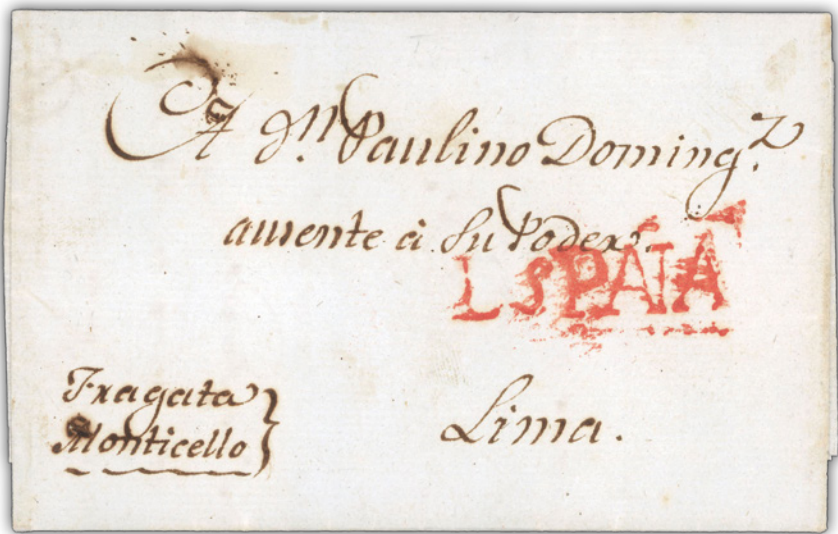 A Dⁿ. Paulino Doming.ᶻ
ausente á Su Poder.
ESPAÑA
Fragata
Monticello
Lima.